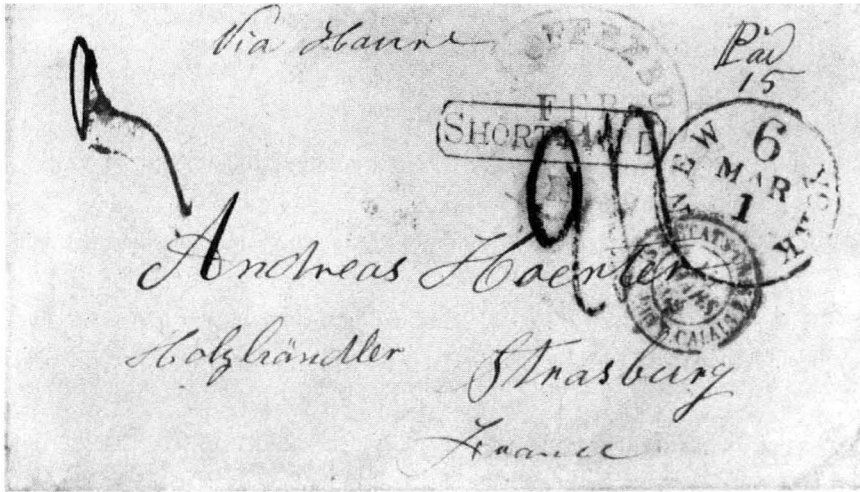 Via Havre
Paid
15
EFFEXBU
FEB
SHORT PAID
NEW YORK
6
MAR
1
ETATS-UNIS
CALAIS
Andreas Haerter
Holzhändler
Strasburg
France